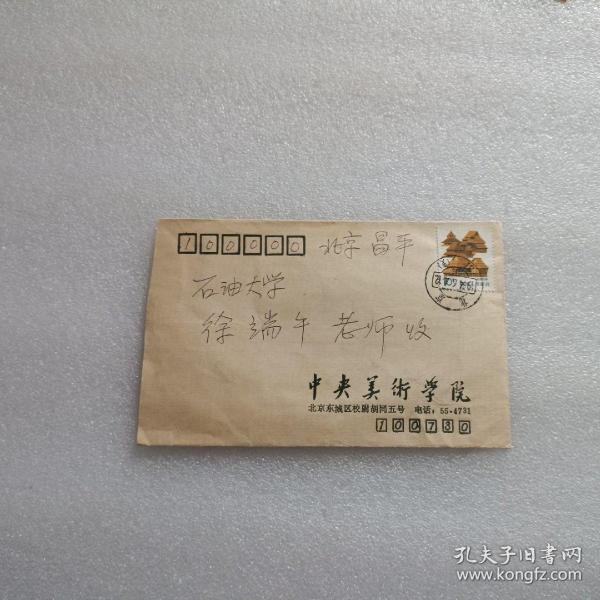 100000 北京昌平
石油大学
徐端午老师收
中央美術学院
北京东城区校尉胡同五号 电话：55·4731
100730
孔夫子旧书网
www.kongfz.com